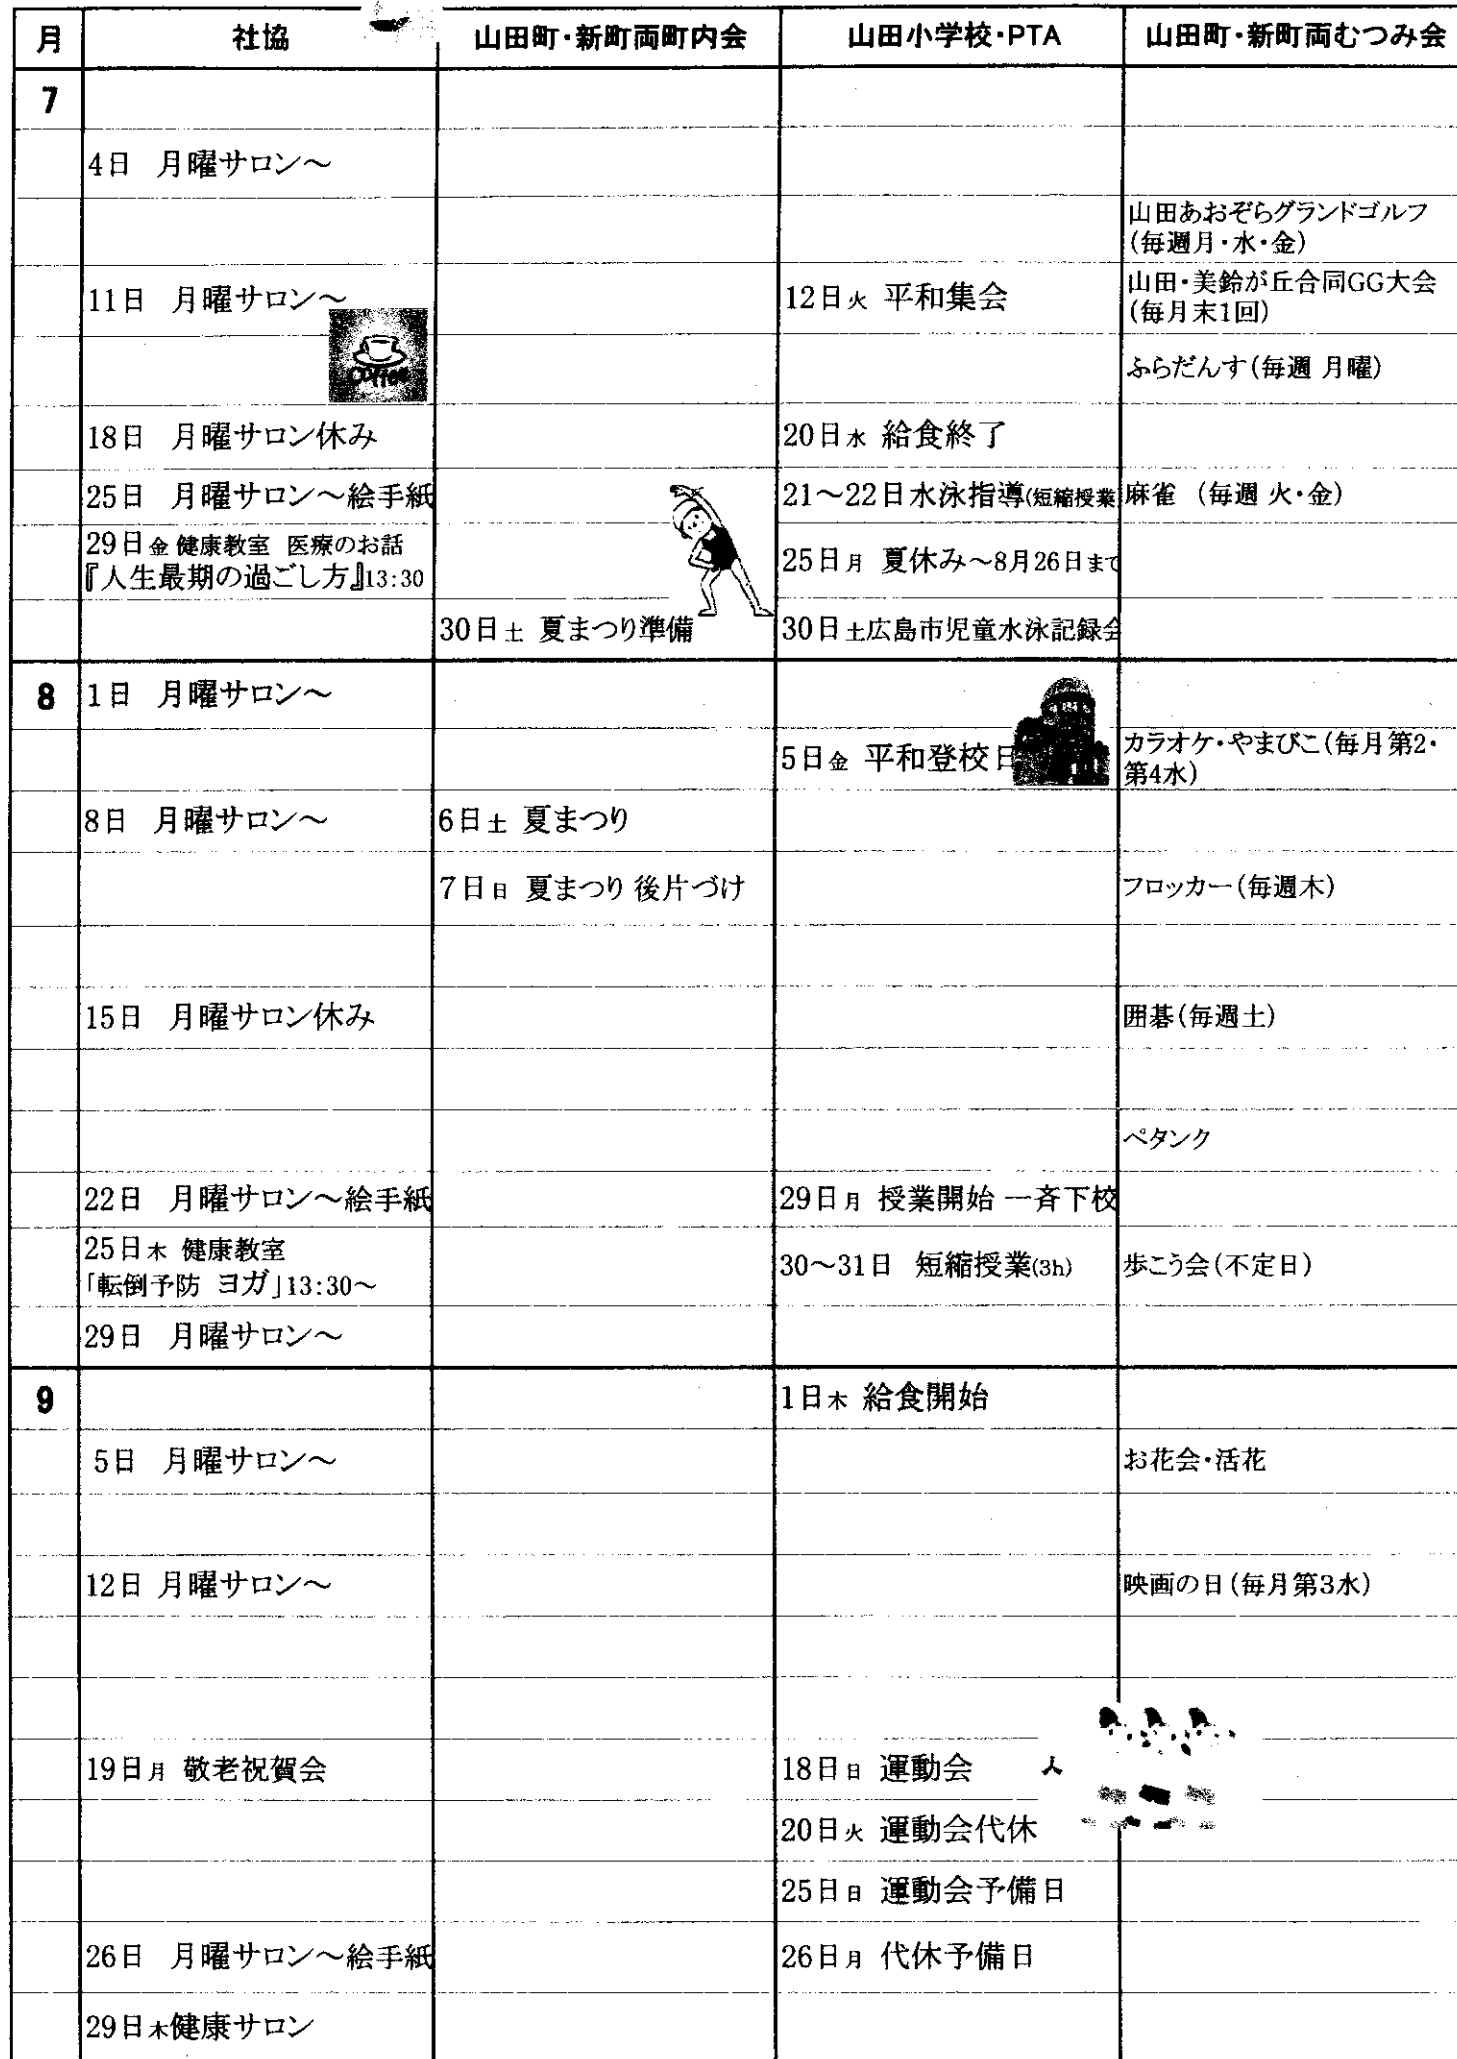 月 社協 山田町・新町両町内会 山田小学校・PTA 山田町・新町両むつみ会
7
4日 月曜サロン～
山田あおぞらグランドゴルフ
(毎週月・水・金)
11日 月曜サロン～ 12日火 平和集会 山田・美鈴が丘合同GG大会
(毎月末1回)
coffee
ふらだんす(毎週 月曜)
18日 月曜サロン休み 20日水 給食終了
25日 月曜サロン～絵手紙 21～22日水泳指導(短縮授業 麻雀 (毎週 火・金)
29日金 健康教室 医療のお話
『人生最期の過ごし方』13:30 25日月 夏休み～8月26日まで
30日土 夏まつり準備 30日土広島市児童水泳記録会
8 1日 月曜サロン～
5日金 平和登校日 カラオケ・やまびこ(毎月第2・
第4水)
8日 月曜サロン～ 6日土 夏まつり
7日日 夏まつり 後片づけ フロッカー(毎週木)
15日 月曜サロン休み 囲碁(毎週土)
ペタンク
22日 月曜サロン～絵手紙 29日月 授業開始 一斉下校
25日木 健康教室
「転倒予防 ヨガ」13:30～ 30～31日 短縮授業(3h) 歩こう会(不定日)
29日 月曜サロン～
9 1日木 給食開始
5日 月曜サロン～ お花会・活花
12日 月曜サロン～ 映画の日(毎月第3水)
19日月 敬老祝賀会 18日日 運動会
20日火 運動会代休
25日日 運動会予備日
26日 月曜サロン～絵手紙 26日月 代休予備日
29日木健康サロン